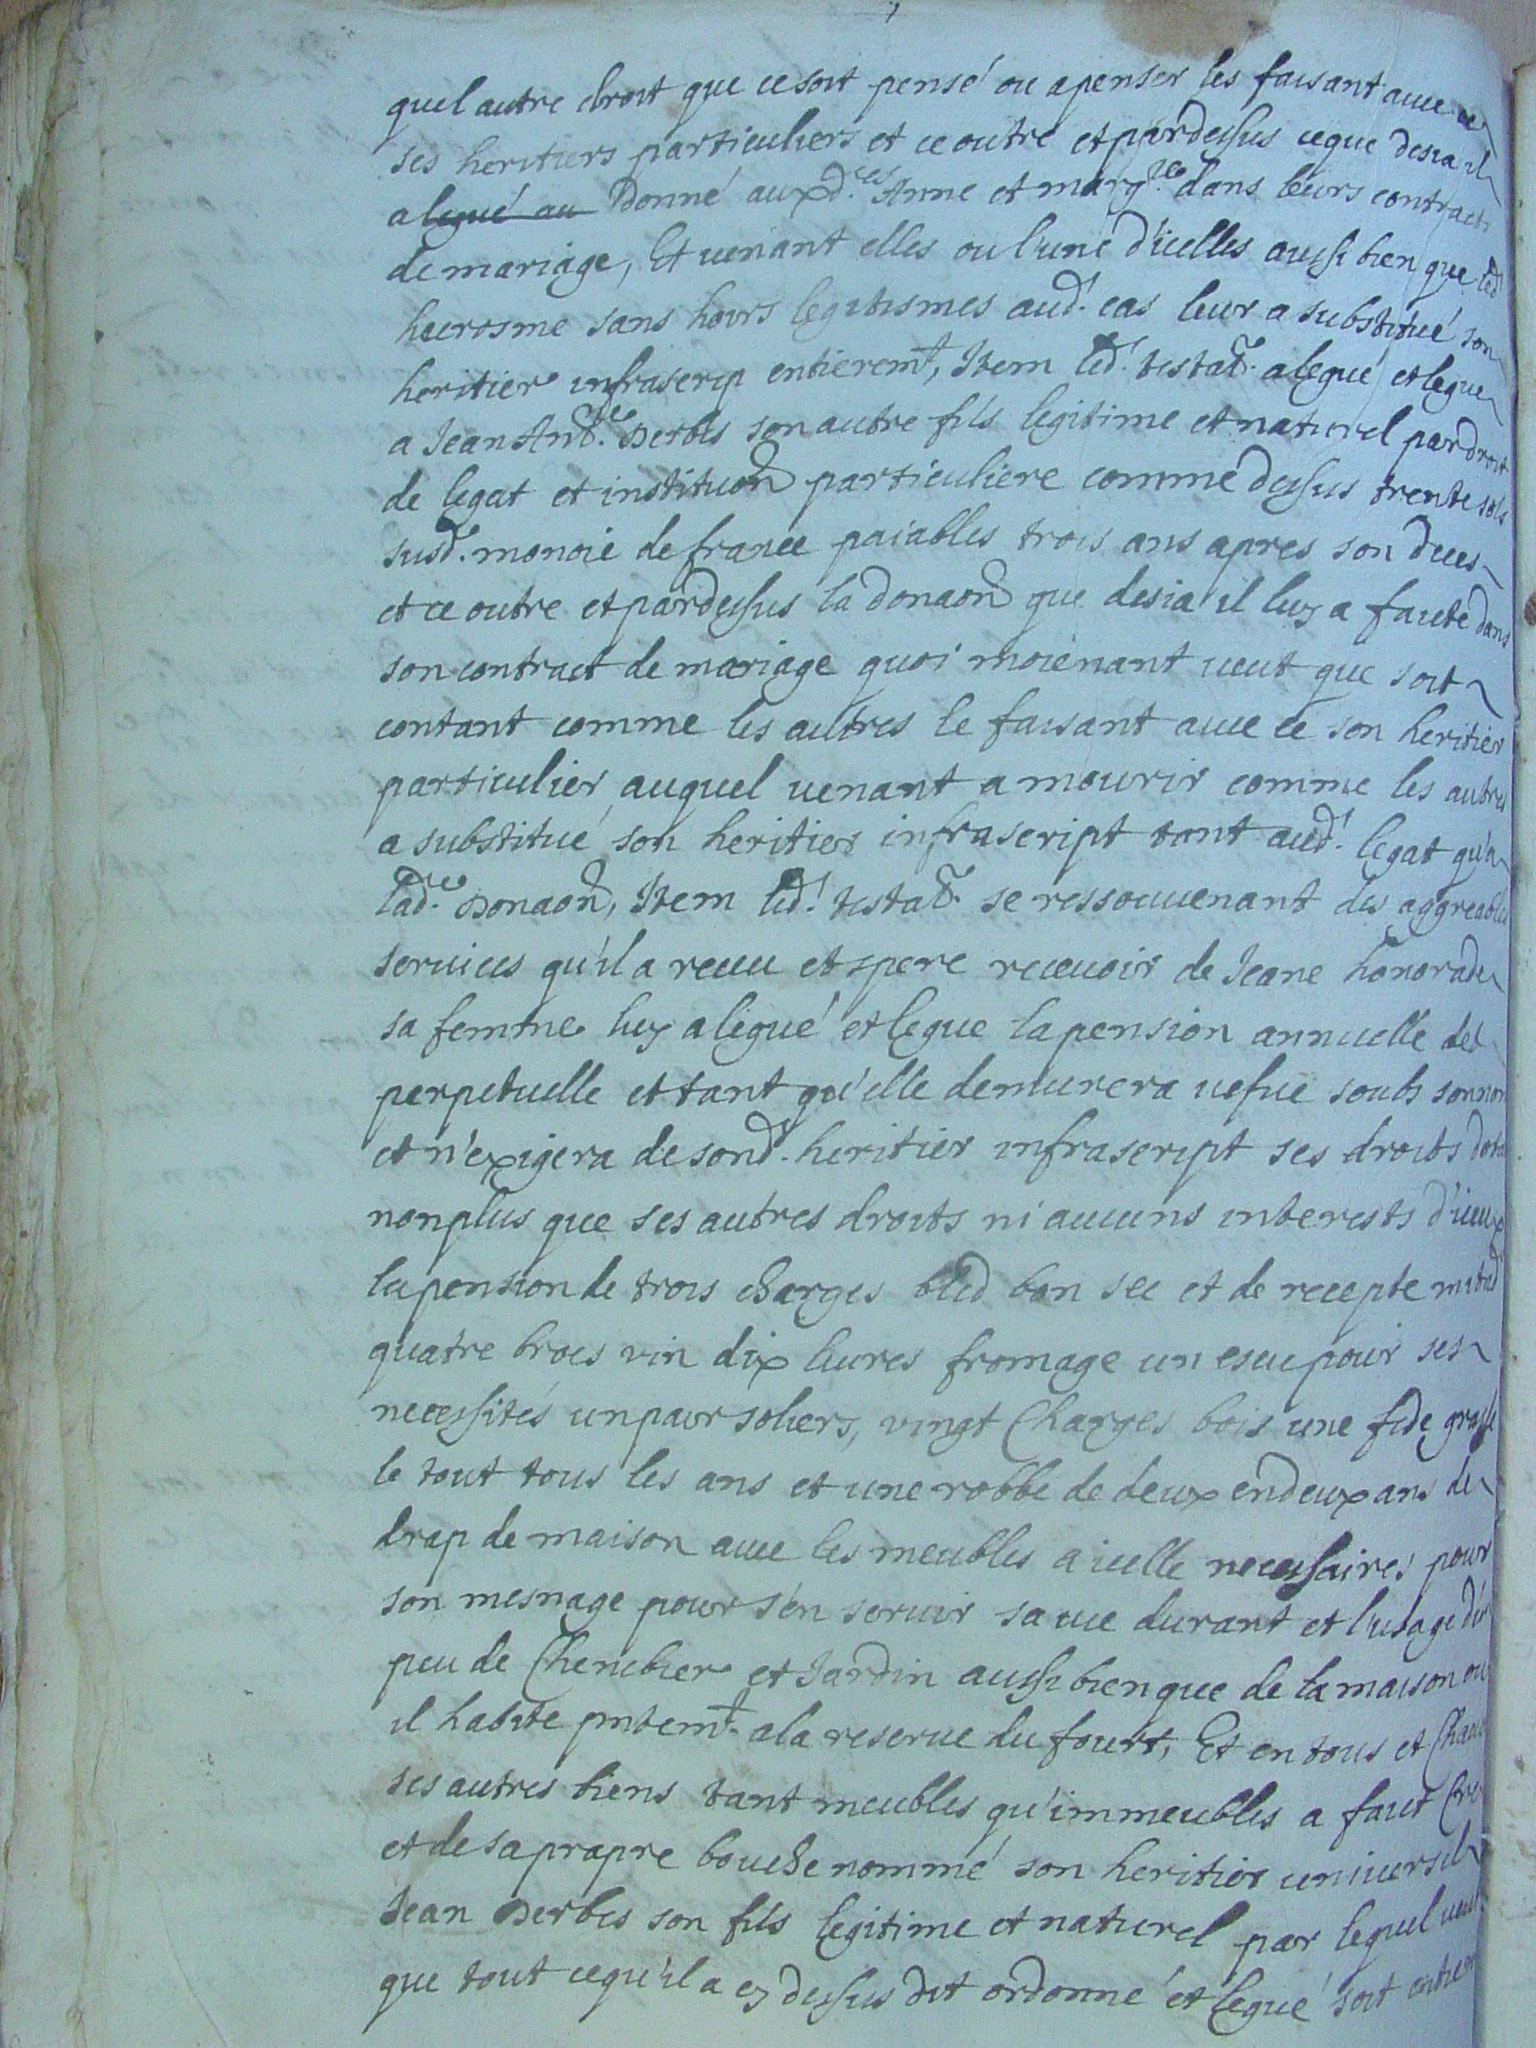 quel autre droit que ce soit pensé ou a penser les faisant avec ce
ses heritiers particuliers et ce outre et par dessus ce que desia il
a legué au Donné auxd.es Anne et marg.te dans leurs contracts
de mariage, Et venant elles ou l'une d'icelles aussi bien que led.
hierosme sans hoirs legitismes aud.t cas leur a substitué son
heritier infrascrip entierem.t, Item led.t testat.r a legué et legue
a Jean Ant.e Derbés son autre fils legitime et naturel par droit
de legat et instituon particuliere comme dessus trente sols
susd. monoie de france paiables trois ans apres son deces
et ce outre et par dessus la donaon que desia il luy a faicte dans
son contract de mariage quoi moienant veut que soit
contant comme les autres le faisant avec ce son heritier
particulier auquel venant a mourir comme les autres
a substitué son heritier infrascript tant aud.t legat qu'a
lad.te Donaon, Item led.t testat.r se ressouvenant des aggreables
services qu'il a receu et spere recevoir de Jeane honorade
sa femme luy a legué et legue la pension annuelle et
perpetuelle et tant qu'elle demurera vefve soubs son nom
et n'exigera de sond.t heritier infrascript ses droits dota
non plus que ses autres droits ni aucuns interests d'iceux
la pension de trois charges bled bon sec et de recepte mitad
quatre brocs vin dix livres fromage un escu pour ses
necessités un pair soliers, vingt Charges bois une fede grasse
le tout tous les ans et une robbe de deux en deux ans de
drap de maison avec les meubles a icelle necessaires pour
son mesnage pour s'en servir sa vie durant et l'usage d'un
peu de Chenebier et Jardin aussi bien que de la maison ou
il habite pntem.t a la reserve du fourt, Et en tous et Chacuns
ses autres biens tant meubles qu'immeubles a faict Cree
et de sa propre bouche nommé son heritier universel
Jean Derbes son fils legitime et naturel par lequel veut
que tout ce qu'il a cy dessus dit ordonné et legué soit entierem